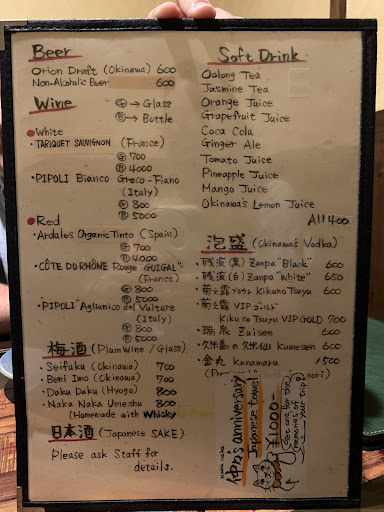 Beer
Orion Draft (Okinawa) 600
Non-Alcoholic Beer 600
Wine Ⓖ→Glass
Ⓑ→Bottle
White
・TARIQUET SAUVIGNON (France)
Ⓖ 700
Ⓑ 4000
・PIPOLI Bianco Greco-Fiano
(Italy)
Ⓖ 800
Ⓑ 5000
Red
・Ardales Organic Tinto (Spain)
Ⓖ 700
Ⓑ 4000
・CÔTE DU RHÔNE Rouge "GUIGAL"
(France)
Ⓖ 800
Ⓑ 5000
・PIPOLI "Aglianico del Vulture
(Italy)
Ⓖ 800
Ⓑ 5000
梅酒 (Plum Wine / Glass)
・Seifuku (Okinawa) 700
・Beni Imo (Okinawa) 700
・Daku Daku (Hyogo) 800
・Naka Naka Umeshu 800
(Homemade with Whisky)
日本酒 (Japanese SAKE)
Please ask Staff for
details.
Soft Drink
Oolong Tea
Jasmine Tea
Orange Juice
Grapefruit Juice
Coca Cola
Ginger Ale
Tomato Juice
Pineapple Juice
Mango Juice
Okinawa's Lemon Juice
All 400
泡盛 (Okinawa's Vodka)
・残波(黒) Zanpa "Black" 600
・残波(白) Zanpa "White" 650
・菊之露ブラウン Kikuno Tsuyu 600
・菊之露 VIPゴールド
Kiku no Tsuyu VIP GOLD 700
・瑞泉 Zuisen 600
・久米島の久米仙 Kumesen 600
・金丸 Kanamaru 1500
anniversary
Japanese towel
¥1000-
Get one for the
memories of
your trip!